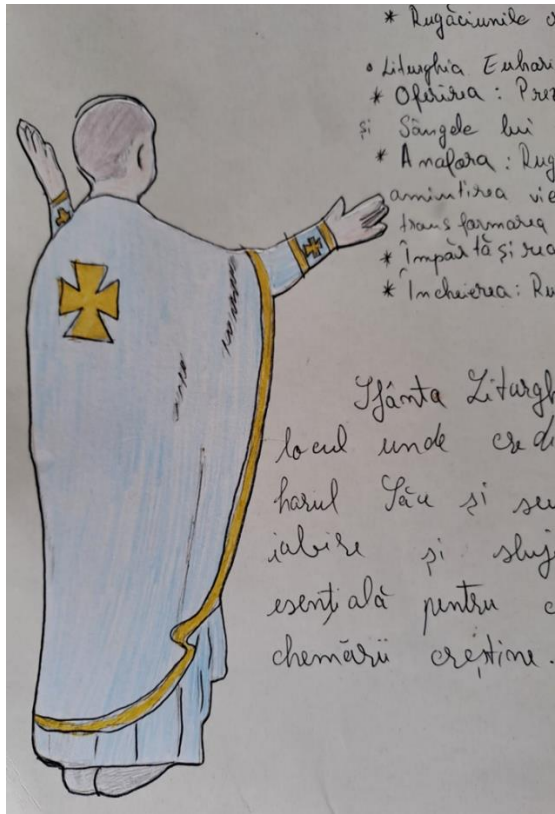 * Rugăciunile
• Liturghia Euhari
* Oferirea : Prez
și Sângele lui
* Anafora : Rug
amintirea vie
transformarea
* Împărtășirea
* Încheierea : Ru
Sfânta Liturgh
locul unde credi
harul Său și
iubire și sluj
esențială pentru
chemării creștine.